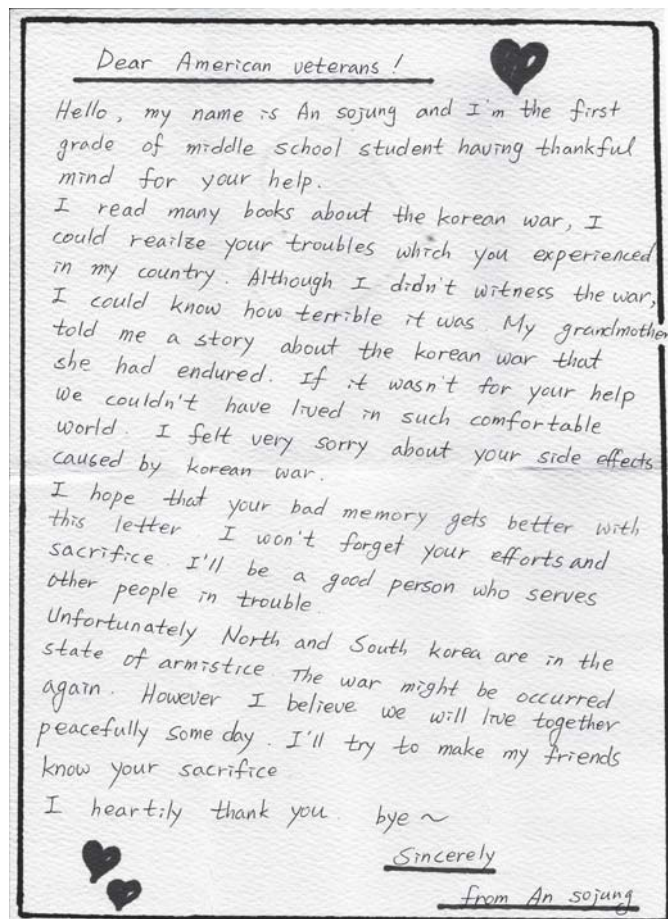 Dear American veterans!
Hello, my name is An sojung and I'm the first
grade of middle school student having thankful
mind for your help.
I read many books about the korean war, I
could reailze your troubles which you experienced
in my country. Although I didn't witness the war,
I could know how terrible it was. My grandmother
told me a story about the korean war that
she had endured. If it wasn't for your help
we couldn't have lived in such comfortable
world. I felt very sorry about your side effects
caused by korean war.
I hope that your bad memory gets better with
this letter I won't forget your efforts and
sacrifice. I'll be a good person who serves
other people in trouble.
Unfortunately North and South korea are in the
state of armistice. The war might be occurred
again. However I believe we will live together
peacefully some day. I'll try to make my friends
know your sacrifice
I heartily thank you. bye ~
Sincerely
from An sojung